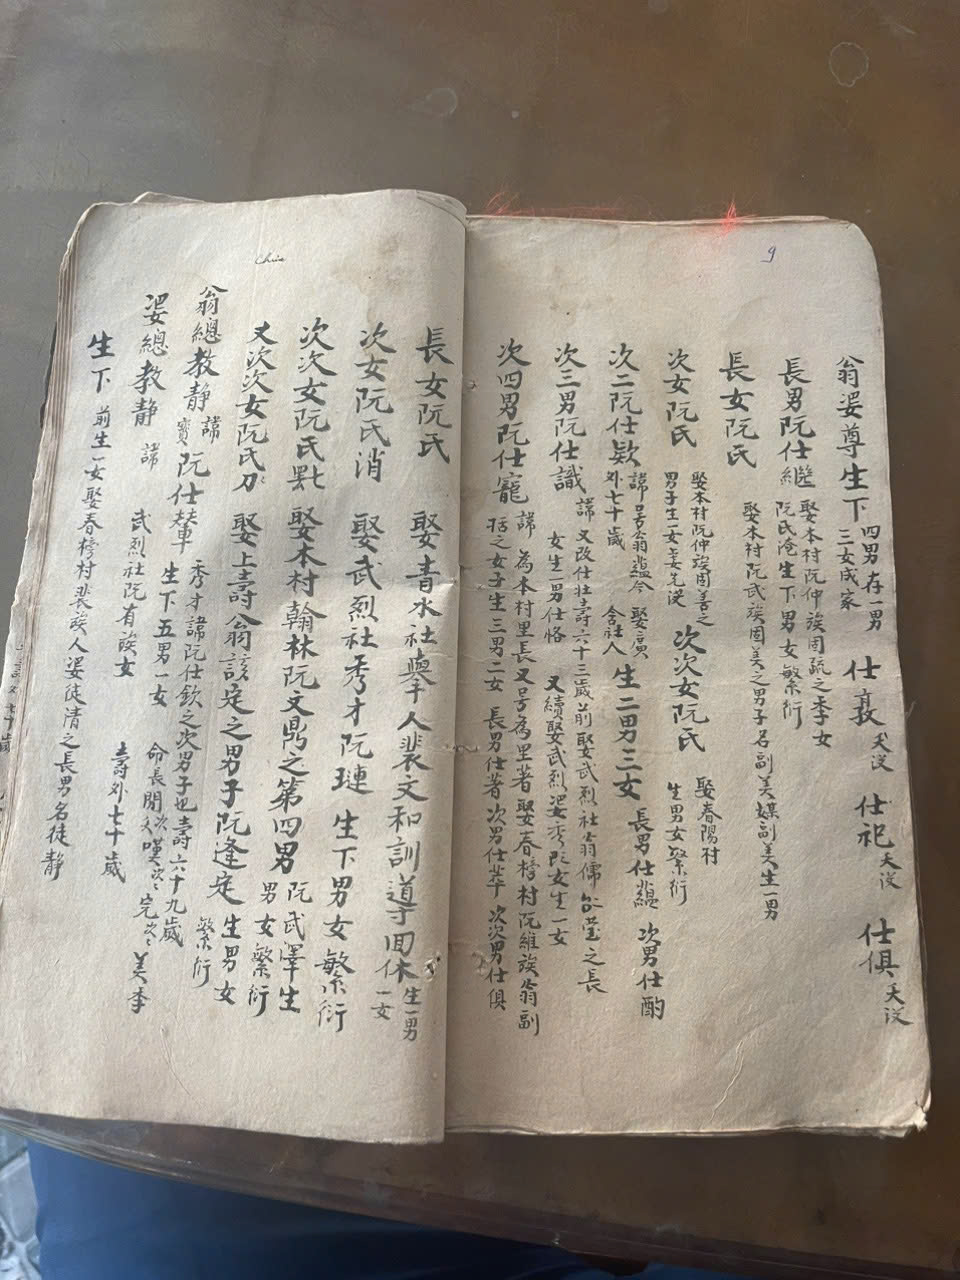 9
翁婆尊生下 四男存一男 三女成家 仕 夭没 仕祀 夭没 仕俱 夭没
長男阮仕 娶本村阮仲族固疏之季女 阮氏 生下男女繁衍
長女阮氏 娶本村阮武族固美之男子名副美媒副美生一男
次女阮氏 娶本村阮仲族固善之男子生一女 次次女阮氏 娶春陽村 生男女繁衍
次二阮仕欵 諱号翁蕴 外七十歲 娶廣 含社人 生二男三女 長男仕蕴 次男仕酌
次三男阮仕識 諱 又改仕壮壽六十三歲前娶武烈社翁儒 之長女生一男仕恪 又續娶武烈 女生一女
次四男阮仕寵 諱 為本村里長又号為里著娶春榜村阮維族翁副 括之女子生三男二女 長男仕著 次男仕 次次男仕俱
Chín
長女阮氏 娶青水社舉人裴文和訓導回休 生一男一女
次女阮氏消 娶武烈社秀才阮璉 生下男女繁衍
次次女阮氏點 娶本村翰林阮文鼎之第四男 阮武澤生男女繁衍
又次次女阮氏刀 娶上壽翁該定之男子阮逢定 生男女繁衍
翁總教靜 諱寳 阮仕輦 秀才諱阮仕欽之次男子也壽六十九歲 生下五男一女 命長閒次嘆 完 美李
婆總教靜 諱 武烈社阮有族女 壽外七十歲
生下 前生一女娶春榜村裴族人婆徒清之長男名徒靜